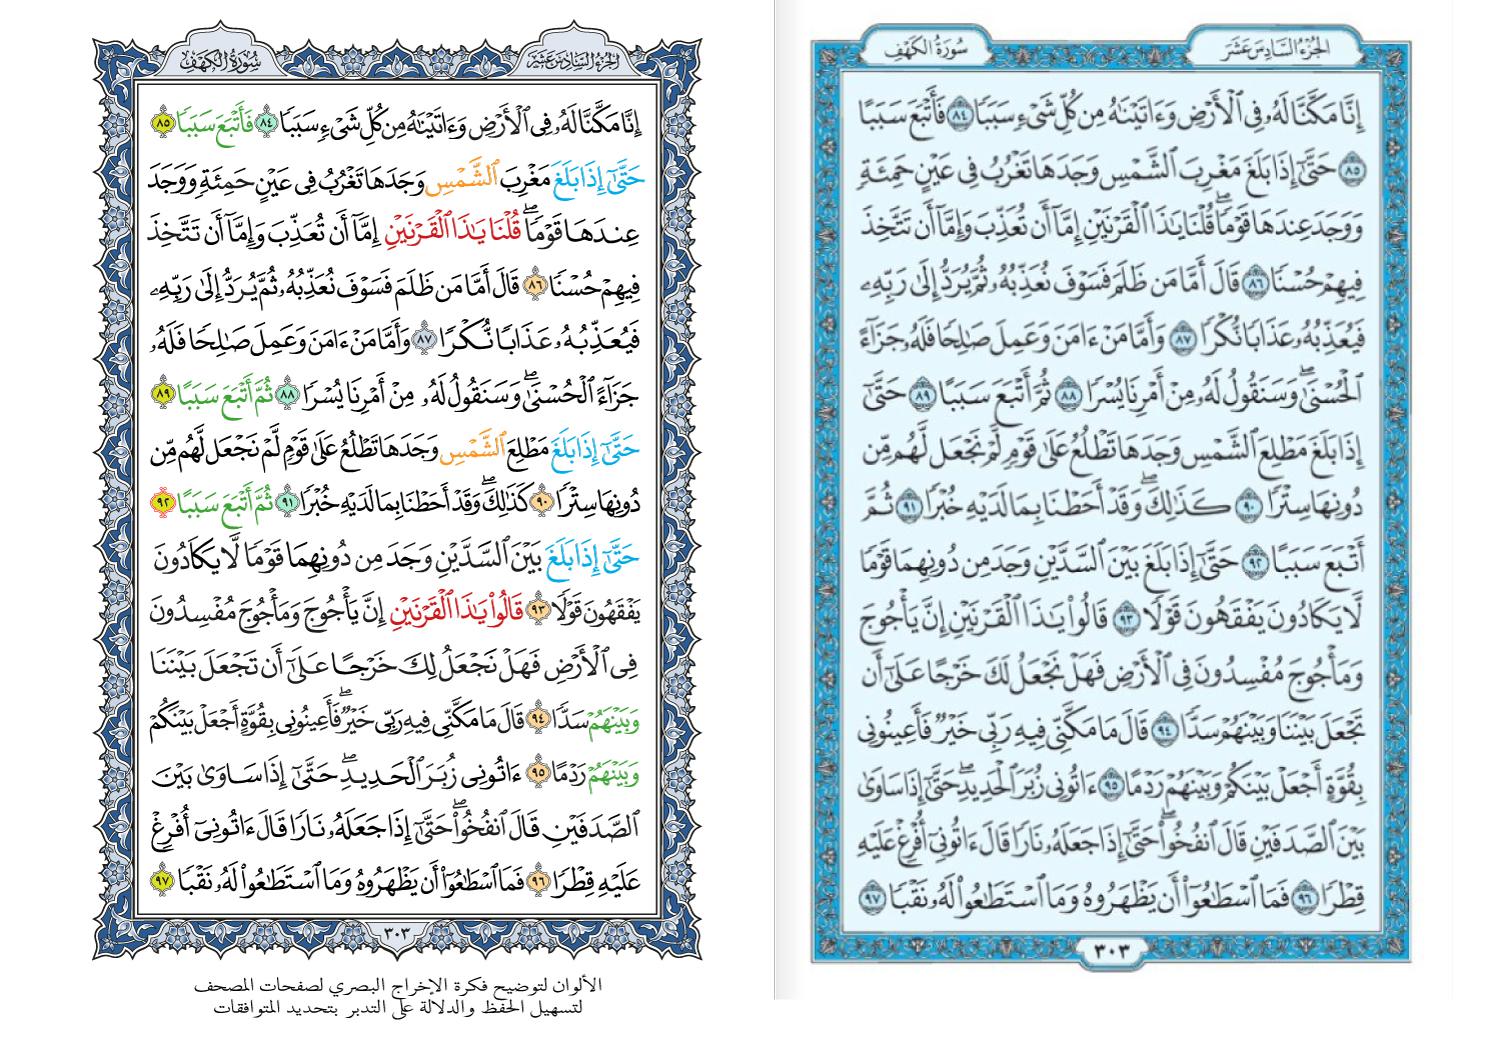 الجزء السادس عشر
سورة الكهف
إِنَّا مَكَّنَّا لَهُۥ فِى ٱلْأَرْضِ وَءَاتَيْنَٰهُ مِن كُلِّ شَىْءٍ سَبَبًا ٨٤ فَأَتْبَعَ سَبَبًا
٨٥ حَتَّىٰٓ إِذَا بَلَغَ مَغْرِبَ ٱلشَّمْسِ وَجَدَهَا تَغْرُبُ فِى عَيْنٍ حَمِئَةٍ
وَوَجَدَ عِندَهَا قَوْمًا ۗ قُلْنَا يَٰذَا ٱلْقَرْنَيْنِ إِمَّآ أَن تُعَذِّبَ وَإِمَّآ أَن تَتَّخِذَ
فِيهِمْ حُسْنًا ٨٦ قَالَ أَمَّا مَن ظَلَمَ فَسَوْفَ نُعَذِّبُهُۥ ثُمَّ يُرَدُّ إِلَىٰ رَبِّهِۦ
فَيُعَذِّبُهُۥ عَذَابًا نُّكْرًا ٨٧ وَأَمَّا مَنْ ءَامَنَ وَعَمِلَ صَٰلِحًا فَلَهُۥ جَزَآءً
ٱلْحُسْنَىٰ ۖ وَسَنَقُولُ لَهُۥ مِنْ أَمْرِنَا يُسْرًا ٨٨ ثُمَّ أَتْبَعَ سَبَبًا ٨٩ حَتَّىٰٓ
إِذَا بَلَغَ مَطْلِعَ ٱلشَّمْسِ وَجَدَهَا تَطْلُعُ عَلَىٰ قَوْمٍ لَّمْ نَجْعَل لَّهُم مِّن
دُونِهَا سِتْرًا ٩٠ كَذَٰلِكَ ۖ وَقَدْ أَحَطْنَا بِمَا لَدَيْهِ خُبْرًا ٩١ ثُمَّ
أَتْبَعَ سَبَبًا ٩٢ حَتَّىٰٓ إِذَا بَلَغَ بَيْنَ ٱلسَّدَّيْنِ وَجَدَ مِن دُونِهِمَا قَوْمًا
لَّا يَكَادُونَ يَفْقَهُونَ قَوْلًا ٩٣ قَالُوا۟ يَٰذَا ٱلْقَرْنَيْنِ إِنَّ يَأْجُوجَ
وَمَأْجُوجَ مُفْسِدُونَ فِى ٱلْأَرْضِ فَهَلْ نَجْعَلُ لَكَ خَرْجًا عَلَىٰٓ أَن
تَجْعَلَ بَيْنَنَا وَبَيْنَهُمْ سَدًّا ٩٤ قَالَ مَا مَكَّنِّى فِيهِ رَبِّى خَيْرٌ فَأَعِينُونِى
بِقُوَّةٍ أَجْعَلْ بَيْنَكُمْ وَبَيْنَهُمْ رَدْمًا ٩٥ ءَاتُونِى زُبَرَ ٱلْحَدِيدِ ۖ حَتَّىٰٓ إِذَا سَاوَىٰ
بَيْنَ ٱلصَّدَفَيْنِ قَالَ ٱنفُخُوا۟ ۖ حَتَّىٰٓ إِذَا جَعَلَهُۥ نَارًا قَالَ ءَاتُونِىٓ أُفْرِغْ عَلَيْهِ
قِطْرًا ٩٦ فَمَا ٱسْطَٰعُوٓا۟ أَن يَظْهَرُوهُ وَمَا ٱسْتَطَٰعُوا۟ لَهُۥ نَقْبًا ٩٧
٣٠٣
الجزء السادس عشر
سورة الكهف
إِنَّا مَكَّنَّا لَهُۥ فِى ٱلْأَرْضِ وَءَاتَيْنَٰهُ مِن كُلِّ شَىْءٍ سَبَبًا ٨٤ فَأَتْبَعَ سَبَبًا ٨٥
حَتَّىٰٓ إِذَا بَلَغَ مَغْرِبَ ٱلشَّمْسِ وَجَدَهَا تَغْرُبُ فِى عَيْنٍ حَمِئَةٍ وَوَجَدَ
عِندَهَا قَوْمًا ۗ قُلْنَا يَٰذَا ٱلْقَرْنَيْنِ إِمَّآ أَن تُعَذِّبَ وَإِمَّآ أَن تَتَّخِذَ
فِيهِمْ حُسْنًا ٨٦ قَالَ أَمَّا مَن ظَلَمَ فَسَوْفَ نُعَذِّبُهُۥ ثُمَّ يُرَدُّ إِلَىٰ رَبِّهِۦ
فَيُعَذِّبُهُۥ عَذَابًا نُّكْرًا ٨٧ وَأَمَّا مَنْ ءَامَنَ وَعَمِلَ صَٰلِحًا فَلَهُۥ
جَزَآءً ٱلْحُسْنَىٰ ۖ وَسَنَقُولُ لَهُۥ مِنْ أَمْرِنَا يُسْرًا ٨٨ ثُمَّ أَتْبَعَ سَبَبًا ٨٩
حَتَّىٰٓ إِذَا بَلَغَ مَطْلِعَ ٱلشَّمْسِ وَجَدَهَا تَطْلُعُ عَلَىٰ قَوْمٍ لَّمْ نَجْعَل لَّهُم مِّن
دُونِهَا سِتْرًا ٩٠ كَذَٰلِكَ ۖ وَقَدْ أَحَطْنَا بِمَا لَدَيْهِ خُبْرًا ٩١ ثُمَّ أَتْبَعَ سَبَبًا ٩٢
حَتَّىٰٓ إِذَا بَلَغَ بَيْنَ ٱلسَّدَّيْنِ وَجَدَ مِن دُونِهِمَا قَوْمًا لَّا يَكَادُونَ
يَفْقَهُونَ قَوْلًا ٩٣ قَالُوا۟ يَٰذَا ٱلْقَرْنَيْنِ إِنَّ يَأْجُوجَ وَمَأْجُوجَ مُفْسِدُونَ
فِى ٱلْأَرْضِ فَهَلْ نَجْعَلُ لَكَ خَرْجًا عَلَىٰٓ أَن تَجْعَلَ بَيْنَنَا
وَبَيْنَهُمْ سَدًّا ٩٤ قَالَ مَا مَكَّنِّى فِيهِ رَبِّى خَيْرٌ فَأَعِينُونِى بِقُوَّةٍ أَجْعَلْ بَيْنَكُمْ
وَبَيْنَهُمْ رَدْمًا ٩٥ ءَاتُونِى زُبَرَ ٱلْحَدِيدِ ۖ حَتَّىٰٓ إِذَا سَاوَىٰ بَيْنَ
ٱلصَّدَفَيْنِ قَالَ ٱنفُخُوا۟ ۖ حَتَّىٰٓ إِذَا جَعَلَهُۥ نَارًا قَالَ ءَاتُونِىٓ أُفْرِغْ
عَلَيْهِ قِطْرًا ٩٦ فَمَا ٱسْطَٰعُوٓا۟ أَن يَظْهَرُوهُ وَمَا ٱسْتَطَٰعُوا۟ لَهُۥ نَقْبًا ٩٧
٣٠٣
الألوان لتوضيح فكرة الإخراج البصري لصفحات المصحف
لتسهيل الحفظ والدلالة على التدبر بتحديد المتوافقات